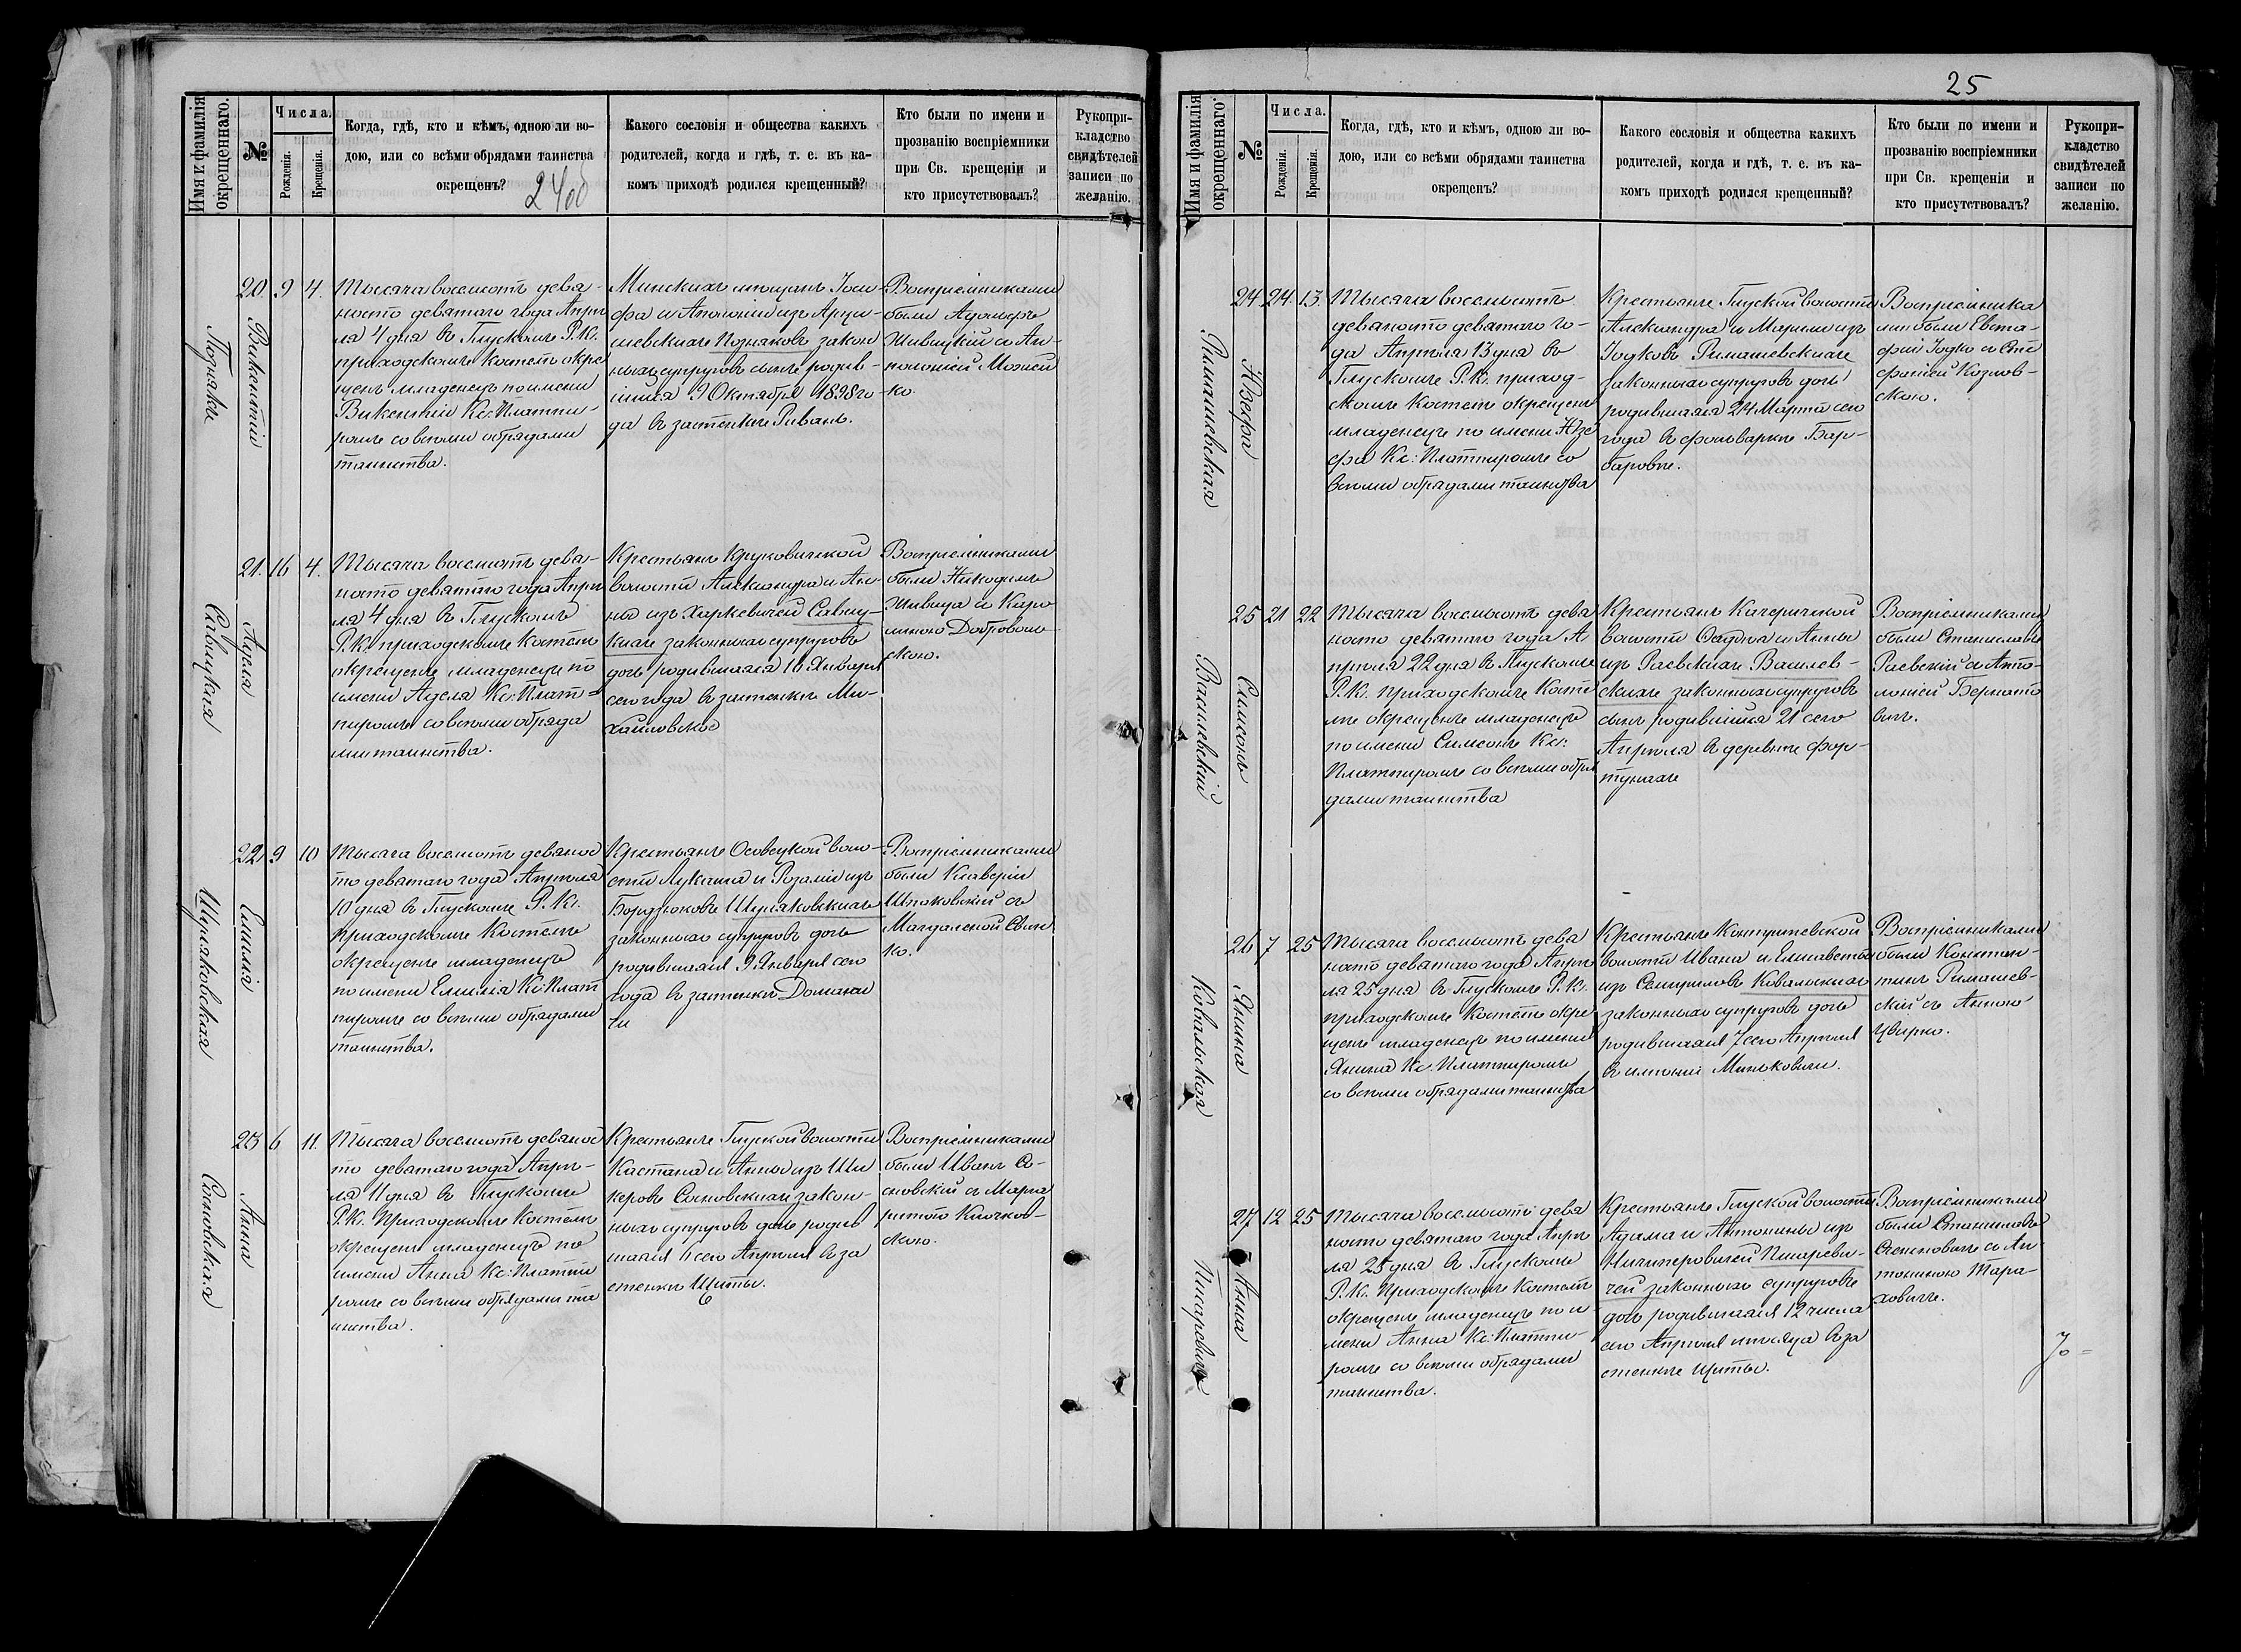 25
Имя и фамилія
окрещеннаго.
№
Числа.
Рожденія.
Крещенія.
Когда, гдѣ, кто и кѣмъ, одною ли во-
дою, или со всѣми обрядами таинства
окрещенъ?
24об
Какого сословія и общества какихъ
родителей, когда и гдѣ, т. е. въ ка-
комъ приходѣ родился крещенный?
Кто были по имени и
прозванію воспріемники
при Св. крещеніи и
кто присутствовалъ?
Рукопри-
кладство
свидѣтелей
записи по
желанію.
Викентій
Позняка
20 9 4.
Тысяча восемьсотъ девя-
носто девятаго года Апрѣ
ля 4 дня въ Глускомъ Р. К.
приходскомъ костелѣ окре
щенъ младенецъ по имени
Викентій Кс: Платпи-
ромъ со всѣми обрядами
таинства.
Минскихъ мѣщанъ Іоси-
фа и Апол��оніи изъ Арци-
шевскихъ Позняковъ закон
ныхъ супруговъ сынъ родив-
шійся 9 Октября 1898 го-
да въ застѣнкѣ
Воспріемниками
были Адольфъ
Живицкій съ Ап-
полоніей
ко.
Адела
Савицкая
21. 16 4.
Тысяча восемьсотъ девя-
носто девятаго года Апрѣ
ля 4 дня въ Глускомъ
Р. К. приходскомъ костелѣ
окрещенъ младенецъ по
имени Аделя Кс: Плат=
пиромъ со всѣми обряда
ми таинства.
Крестьянъ Круковичской
волости Александра и Ан-
ны изъ Харкевичей Савиц-
кихъ законныхъ супруговъ
дочь родившаяся 16 Января
сего года въ застенкѣ Ми-
хайловскѣ
Воспріемниками
были Никодимъ
Живица съ Каро
линою Доброволь-
скою.
Емилія
Шуляковская
22 9 10
Тысяча восемьсотъ девянос
то девятаго года Апрѣля
10 дня въ Глускомъ Р. К.
приходскомъ Костелѣ
окрещенъ младенецъ
по имени Емилія Кс: Плат
пиромъ со всѣми обрядами
таинства.
Крестьянъ Осовецкой воло-
сти Лукаша и Розаліи изъ
Бордзюковъ Шуляковскихъ
законныхъ супруговъ дочь
родившаяся 9 Января сего
года въ застенкѣ Домано
Воспріемниками
были Ксаверій
Шпаковскій съ
Магдаленой
ко.
Анна
Сосновская
23 6 11.
Тысяча восемьсотъ девянос
то девятаго года Апрѣ-
ля 11 дня въ Глускомъ
Р. К. Приходскомъ Костелѣ
окрещенъ младенецъ по
имени Анна Кс: Платпи
ромъ со всѣми обрядами та
инства.
Крестьянъ Глуской волости
Кастана и Анны изъ Ши
керовъ Сосновскихъ закон-
ныхъ супруговъ дочь родив
шаяся 6 сего Апрѣля въ за
стенкѣ Щиты.
Воспріемниками
были Иванъ Со-
сновскій съ Марга
ритою Клочков-
скою.
Имя и фамилія
окрещеннаго.
№
Числа.
Рожденія.
Крещенія.
Когда, гдѣ, кто и кѣмъ, одною ли во-
дою, или со всѣми обрядами таинства
окрещенъ?
Какого сословія и общества какихъ
родителей, когда и гдѣ, т. е. въ ка-
комъ приходѣ родился крещенный?
Кто были по имени и
прозванію воспріемники
при Св. крещеніи и
кто присутствовалъ?
Рукопри-
кладство
свидѣтелей
записи по
желанію.
Юзефа
Римашевская
24 24. 13.
Тысяча восемьсотъ
девяносто девятаго го-
да Апрѣля 13 дня въ
Глускомъ Р. К. приход-
скомъ Костелѣ окрещенъ
младенецъ по имени Юзе
фа Кс: Платпиромъ со
всѣми обрядами таинства
Крестьянъ Глуской волости
Александра и Маріи изъ
Іодковъ Римашевскихъ
законныхъ супруговъ дочь
родившаяся 24 Марта сего
года въ фольваркѣ Бар-
баровѣ.
Воспріемника
ми были Евста-
фій Іодко съ Сте
фаніей Козлов-
скою.
Симсонъ
Василевскій
25 21 22
Тысяча восемьсотъ девя
носто девятаго года А
прѣля 22 дня въ Глускомъ
Р. К. приходскомъ Косте
лѣ окрещенъ младенецъ
по имени Симсонъ Кс:
Платпиромъ со всѣми обря
дами таинства
Крестьянъ Качеричской
волости Осифа и Анны
изъ Раевскихъ Василев-
скихъ законныхъ супруговъ
сынъ родившійся 21 сего
Апрѣля въ деревнѣ Фор-
тунахъ
Воспріемниками
были Станиславъ
Раевскій съ Аппо-
лоніей Бернато
вичъ.
Янина
Ковальская
26 7 25
Тысяча восемьсотъ девя
носто девятаго года Апрѣ
ля 25 дня въ Глускомъ Р. К.
приходскомъ Костелѣ окре
щенъ младенецъ по имени
Янина Кс. Платпиромъ
со всѣми обрядами таинства
Крестьянъ
волости Ивана и Елисаветы
изъ Ковальскихъ
законныхъ супруговъ дочь
родившаяся 7 сего Апрѣля
въ имѣніи Миньковичи.
Воспріемниками
были Констан-
тинъ Римашев-
скій съ Анною
Цвирко.
Анна
Писаревичъ
27 12 25
Тысяча восемьсотъ девя
носто девятаго года Апрѣ
ля 25 дня въ Глускомъ
Р. К. Приходскомъ Костелѣ
окрещенъ младенецъ по и
мени Анна Кс: Платпи-
ромъ со всѣми обрядами
таинства.
Крестьянъ Глуской волости
Адама и Антонины изъ
Ничипоровичей Писареви-
чей законныхъ супруговъ
дочь родившаяся 12 числа
сего Апрѣля мѣсяца въ за
стенкѣ Щиты.
Воспріемниками
были Станиславъ
съ Ан
тониною Тара-
ховичъ.